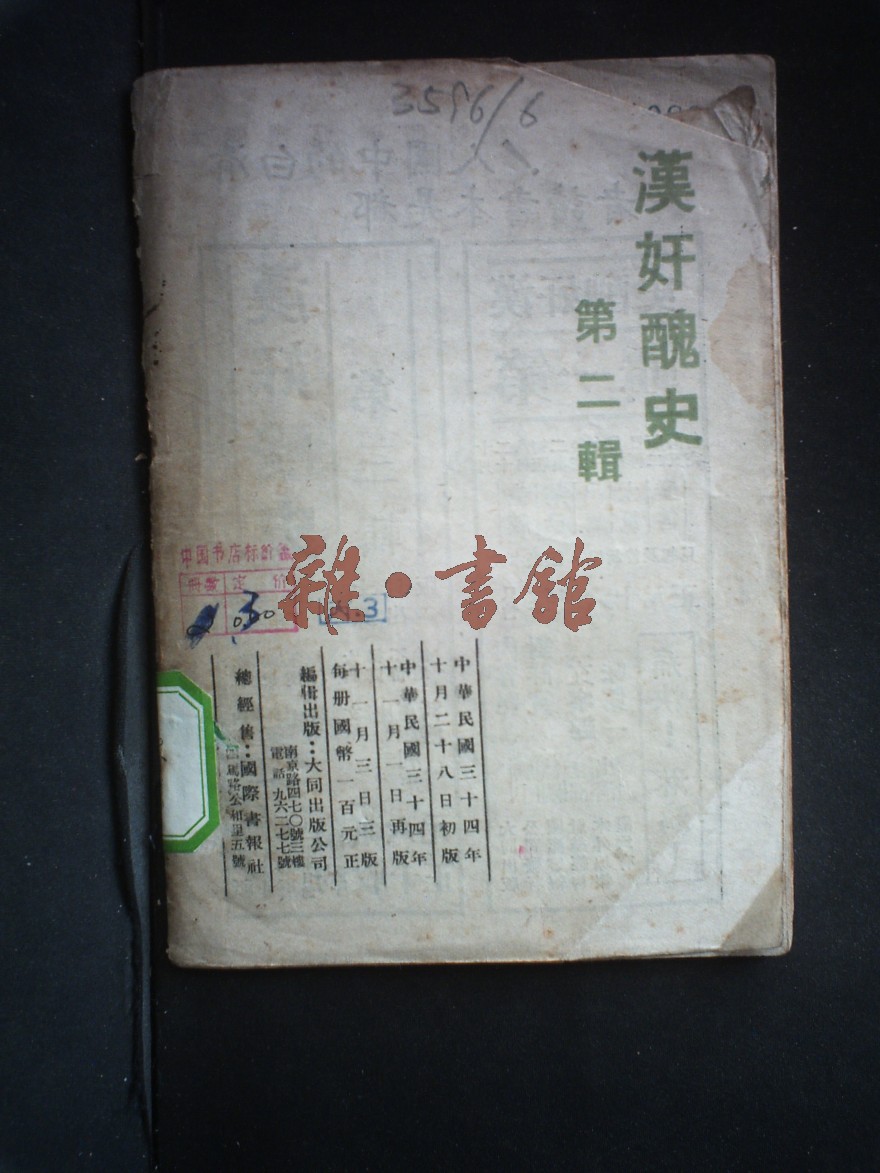 3596/6
漢奸醜史
第二輯
中国书店标价签
册数 定价
3
雜·書館
A.3
中華民國三十四年
十月二十八日初版
中華民國三十四年
十一月一日再版
十一月三日三版
每册國幣一百元正
編輯出版：大同出版公司
南京路四七〇號三樓
電話九六二七七號
總經售：國際書報社
馬路公和里五號